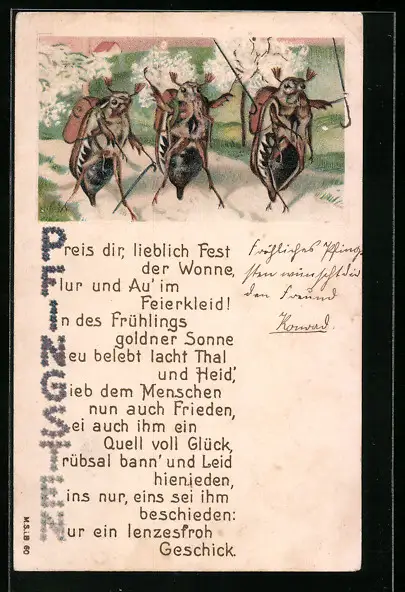 Preis dir, lieblich Fest
der Wonne,
Flur und Au' im
Feierkleid!
In des Frühlings
goldner Sonne
Neu belebt lacht Thal
und Heid',
Gieb dem Menschen
nun auch Frieden,
Sei auch ihm ein
Quell voll Glück,
Trübsal bann' und Leid
hienieden,
Eins nur, eins sei ihm
beschieden:
Nur ein lenzesfroh
Geschick.
Fröhliches Pfing-
sten wünscht dir
dein Freund
Konrad.
M.S.i.B. 60